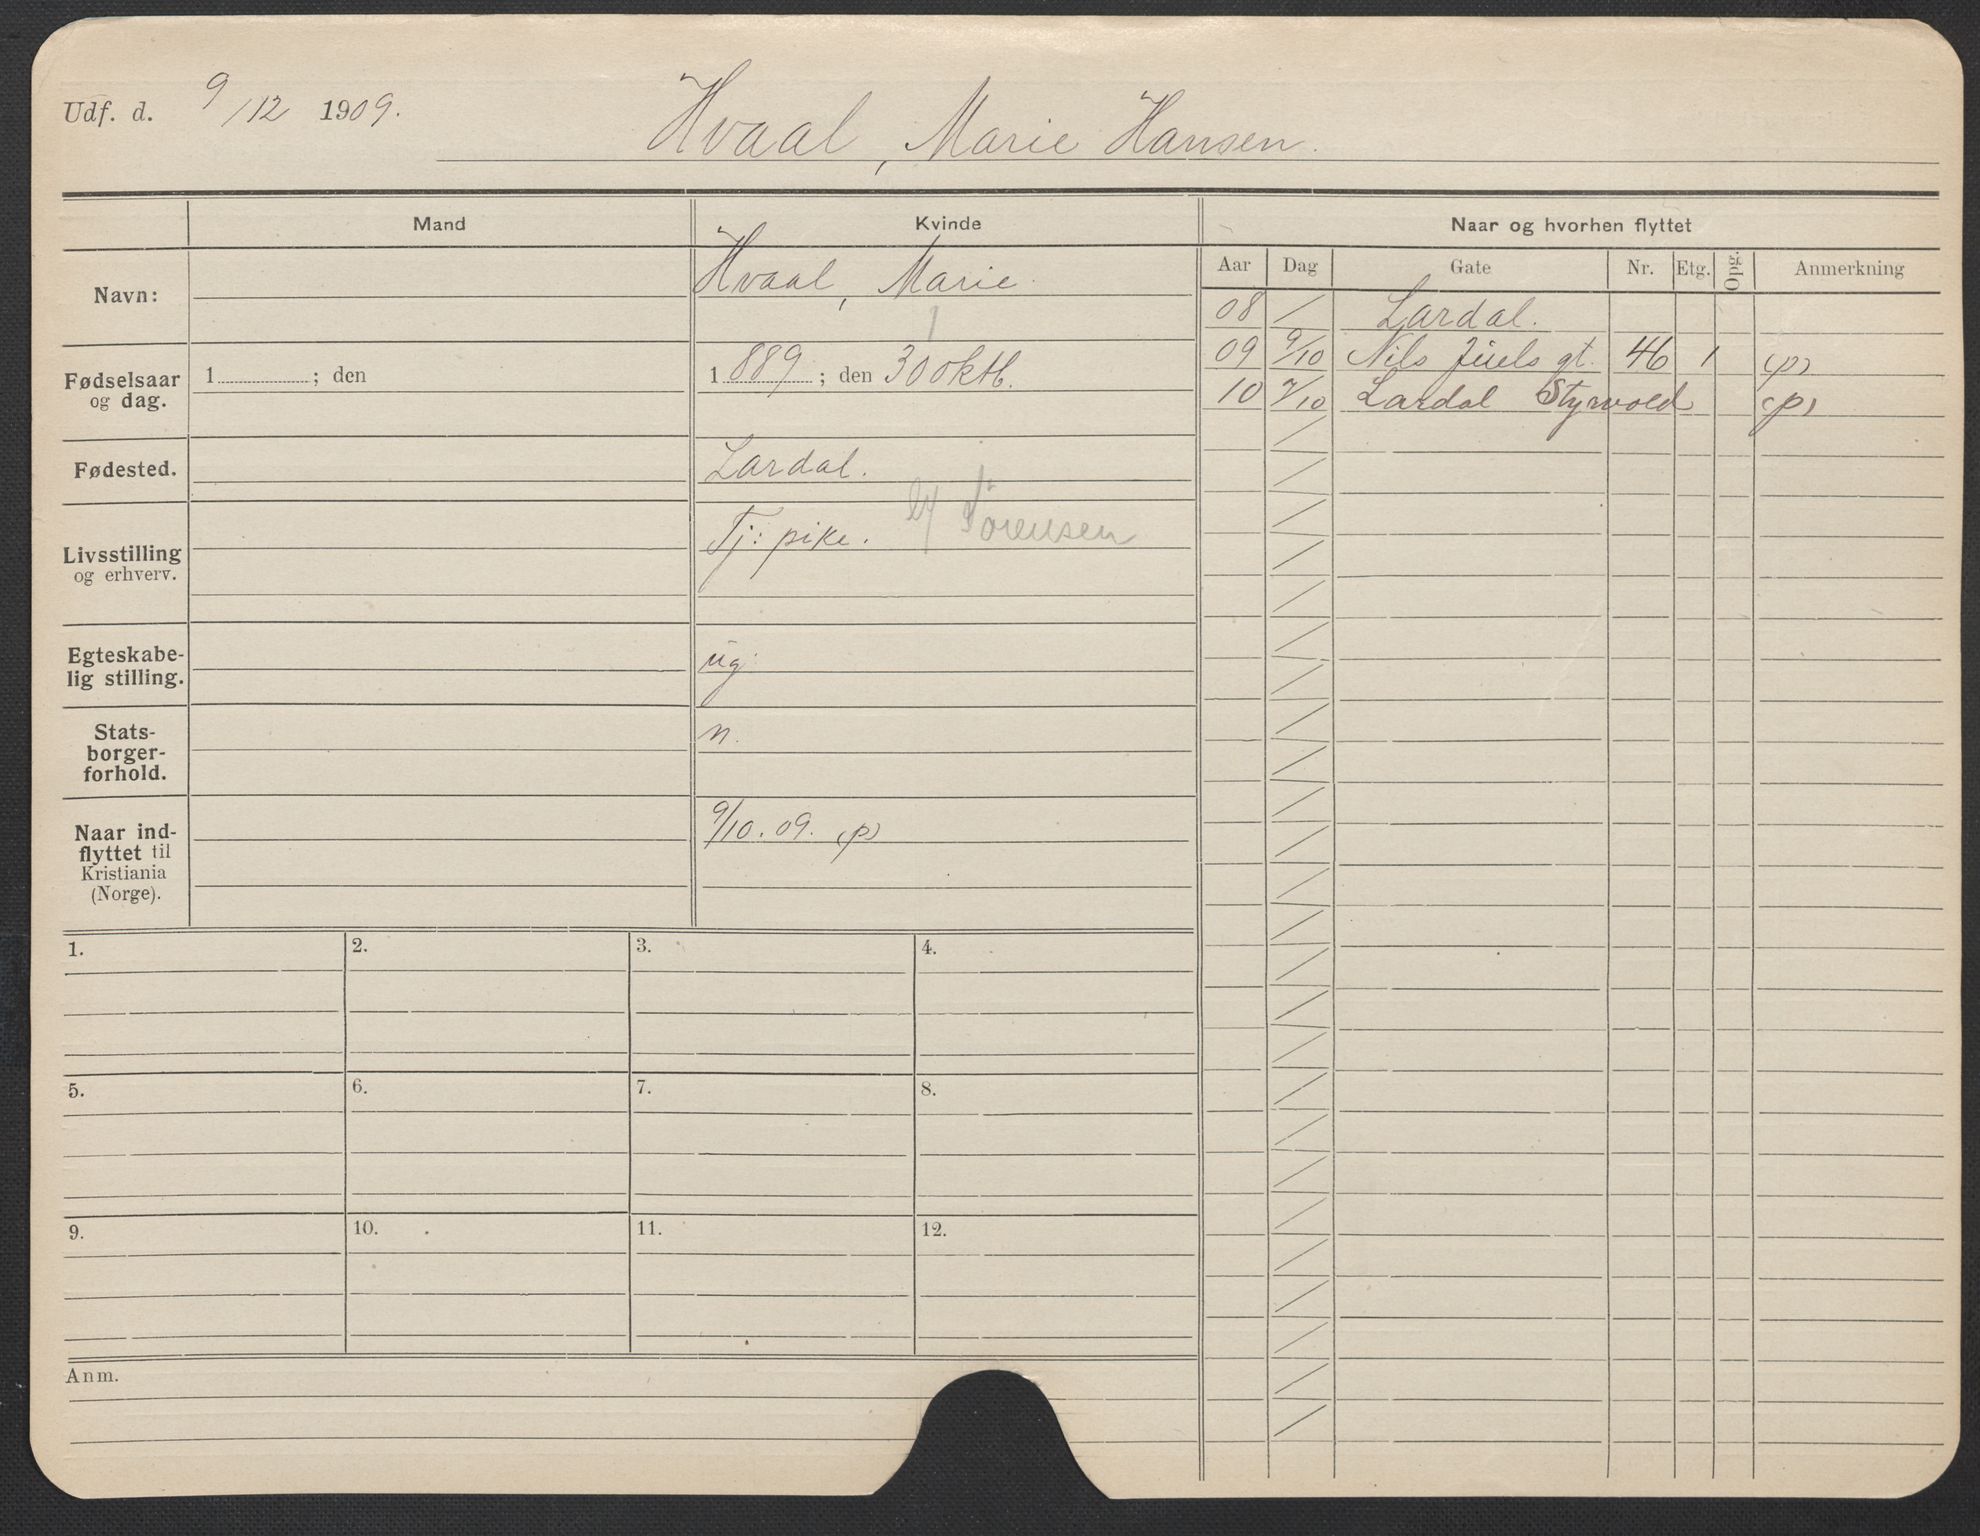 Udf. d. 9/12 1909.
Hvaal, Marie Hansen.
Mand
Kvinde
Naar og hvorhen flyttet
Aar Dag Gate Nr. Etg. Opg. Anmerkning
Navn:
Hvaal, Marie
1
Fødselsaar og dag.
1 ; den
1889 ; den 30 oktb.
Fødested.
Lardal.
Livsstilling og erhverv.
Tj: pike.
Sörensen
Egteskabe-
lig stilling.
ug.
Stats-
borger-
forhold.
n.
Naar ind-
flyttet til
Kristiania
(Norge).
9/10. 09. (p)
08 / Lardal.
09 9/10 Nils Juels gt. 46 1 (p)
10 7/10 Lardal Styrvold (p)
1. 2. 3. 4.
5. 6. 7. 8.
9. 10. 11. 12.
Anm.